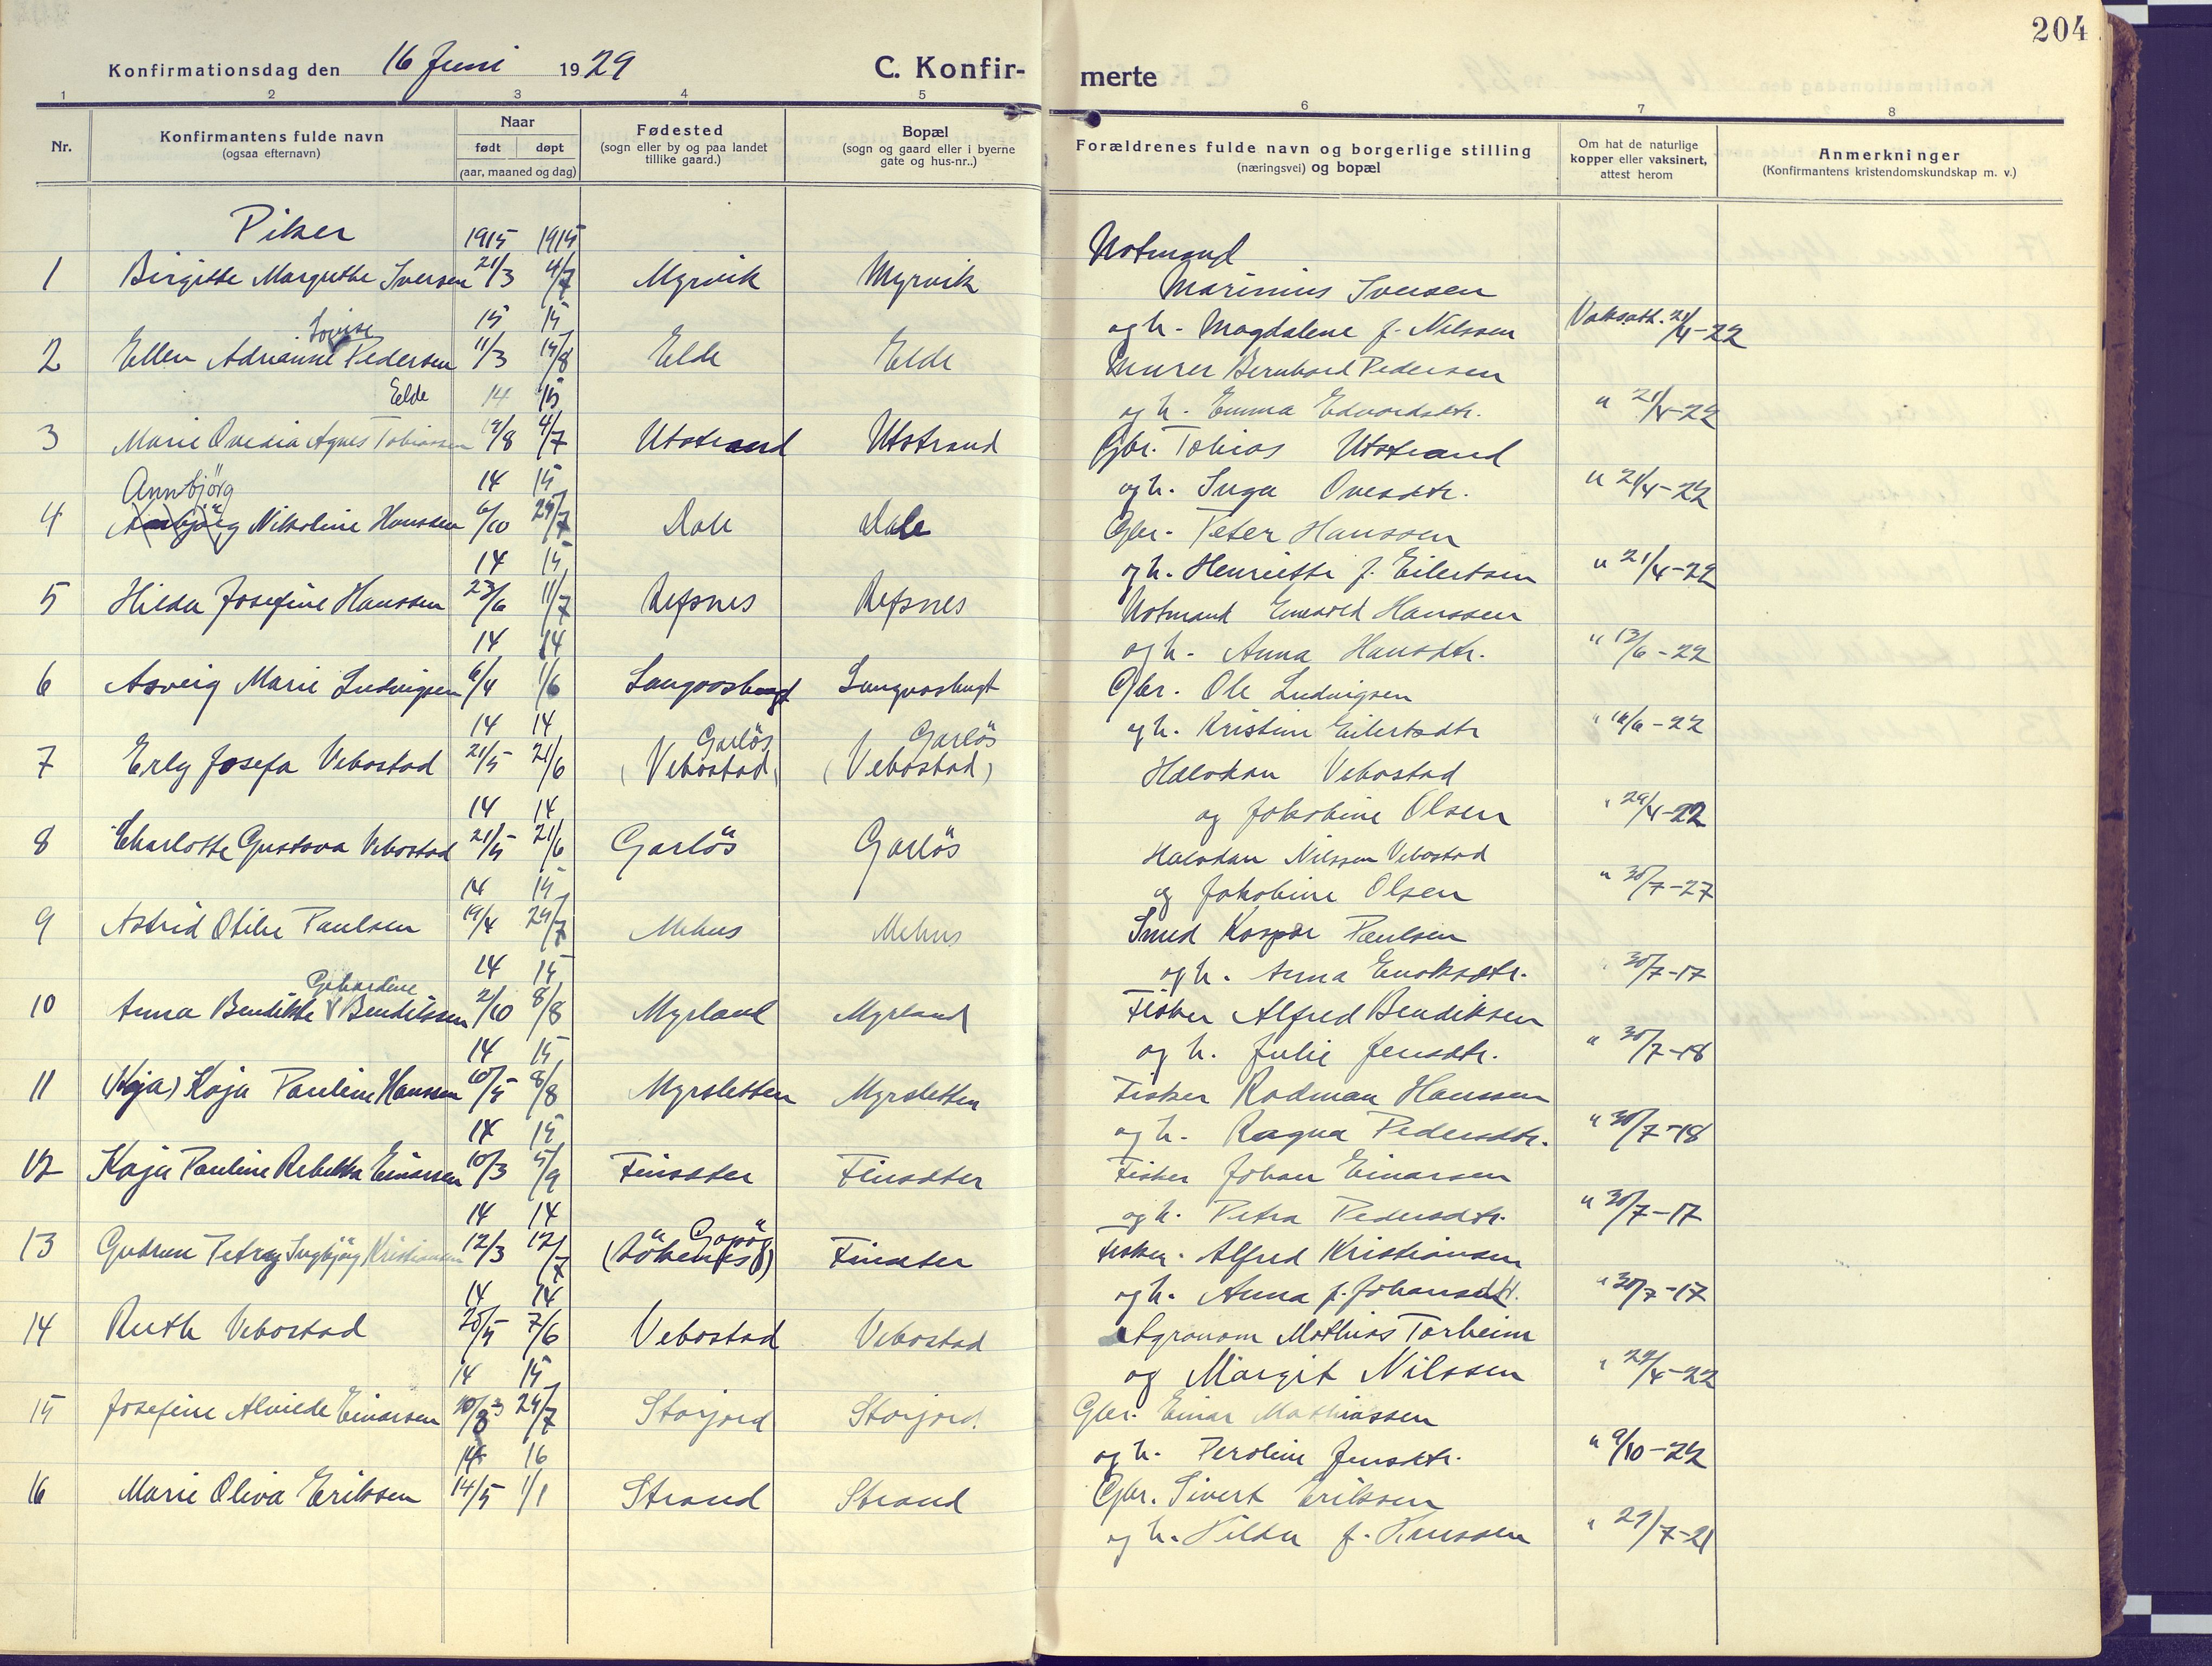 204
Konfirmationsdag den 16 Juni 1929
C. Konfirmerte
1 2 3 4 5 6 7 8
Nr.
Konfirmantens fulde navn
(ogsaa efternavn)
Naar
født døpt
(aar, maaned og dag)
Fødested
(sogn eller by og paa landet
tillike gaard.)
Bopæl
(sogn og gaard eller i byerne
gate og hus-nr..)
Forældrenes fulde navn og borgerlige stilling
(næringsvei) og bopæl
Om hat de naturlige
kopper eller vaksinert,
attest herom
Anmerkninger
(Konfirmantens kristendomskundskap m. v.)
Piker
1915 1915 Notmand
1 Birgitte Margrethe Iversen 21/3 4/7 Myrvik Myrvik Marinius Iversen
15 15 og h. Magdalene f. Nilssen Vaksatt. 21/4-22
Lovise
2 Ellen Adrianne Pedersen 11/3 15/8 Elde Elde Murer Bernhard Pedersen
Elde 14 15 og h. Emma Edvardsdtr. " 21/4-22
3 Marie Ovedia Agnes Tobiassen 12/8 4/7 Utstrand Utstrand Gbr. Tobias Utstrand
Annbjörg 14 15 og h. Inga Ovesdtr. " 21/4-22
4 Annbjörg Nikoline Hanssen 6/10 25/7 Dale Dale Gbr. Peter Hanssen
14 15 og h. Henriette f. Eilertsen " 21/4-22
5 Hilda Josefine Hanssen 23/6 11/7 Refsnes Refsnes Notmand Hanssen
14 14 og h. Anna Hansdtr. " 13/6-22
6 Asveig Marie Ludvigsen 6/4 1/6 Langvasbugt Langvasbugt Gbr. Ole Ludvigsen
14 14 og h. Kristine Eilertsdtr " 16/6-22
Garlös Garlös
7 Erly Josefa Vebostad 21/5 21/6 (Vebostad) (Vebostad) Halvdan Vebostad
14 14 og Jakobine Olsen " 29/4-22
8 Charlotte Gustava Vebostad 21/5 21/6 Garlös Garlös Halvdan Nilssen Vebostad
14 15 og Jakobine Olsen " 30/7-27
9 Astrid Otilie Paulsen 19/4 25/7 Mehus Mehus Smed Kaspar Paulsen
14 15 og h. Anna Enoksdtr. " 30/7-17
Gehardine
10 Anna Bendikte Bendiksen 2/10 8/8 Myrland Myrland Fisker Alfred Bendiksen
14 15 og h. Julie Jensdtr. " 30/7-18
11 (Kaja) Kaja Pauline Hanssen 10/5 8/8 Myrsletten Myrsletten Fisker Rodman Hanssen
14 15 og h. Ragna Pedersdtr. " 30/7-18
12 Kaja Pauline Rebekka Einarsen 10/3 5/9 Finsæter Finsæter Fisker Johan Einarsen
14 14 og h. Petra Pedersdtr. " 30/7-17
13 Gudrun Petra Ingbjörg Kristiansen 12/3 12/7 Finsæter Fisker. Alfred Kristiansen
14 14 og h. Anna f. Johansdtr. " 30/7-17
14 Ruth Vebostad 20/5 7/6 Vebostad Vebostad Agronom Mathias Torheim
14 15 og Margit Nilssen " 29/4-22
15 Josefine Alvilde Einarsen 25/7 Storjord Storjord. Gbr. Einar Mathiassen
14 16 og h. Peroline Jensdtr. " 9/10-22
16 Marie Oliva Eriksen 14/5 1/1 Strand Strand Gbr. Sivert Eriksen
og h. Hilda f. Knussen " 27/7-21